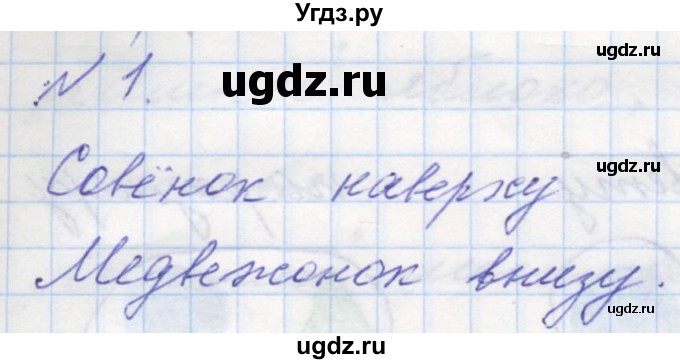 Угдз.ру
ugdz.ru
№ 1.
ugdz.ru
ugdz.ru
Совёнок наверху
Медвежонок внизу.
ugdz.ru
ugdz.ru